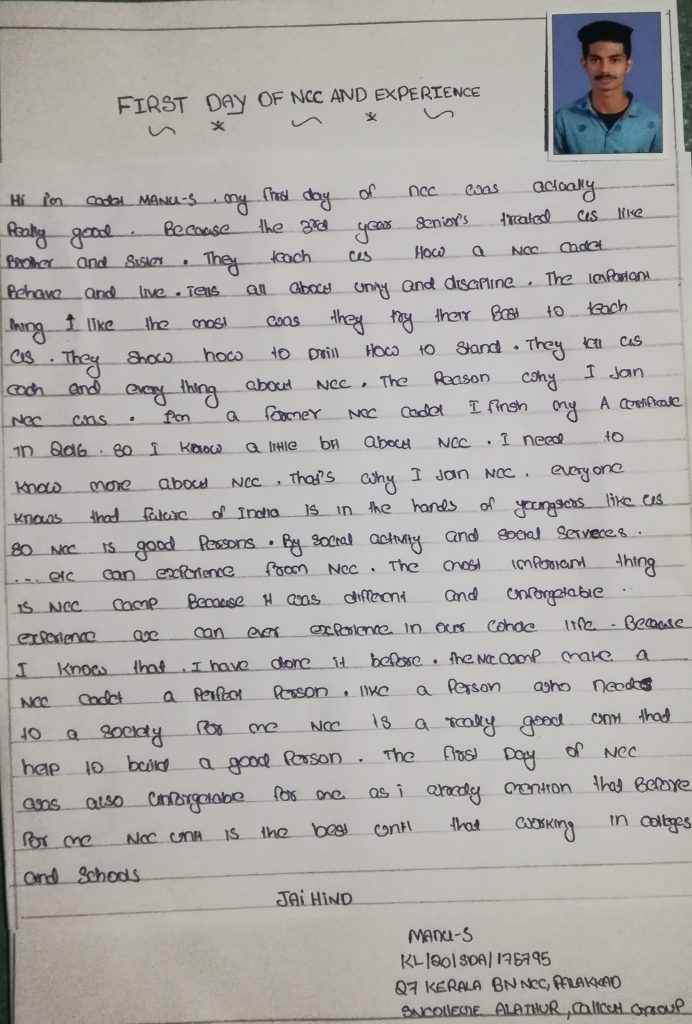 FIRST DAY OF NCC AND EXPERIENCE
Hi i'm cadet MANU-S. my first day of ncc was actually
Really good. Because the 3rd year senior's treated us like
Brother and Sister. They teach us How a NCC Cadet
Behave and live. Tells all about unity and discipline. The important
thing I like the most was they try their Best to teach
us. They show how to Drill How to Stand. They tell us
each and every thing about NCC. The Reason why I Join
NCC was. i'm a former NCC Cadet I finish my A certificate
in 2016. so I know a little bit about NCC. I need to
know more about NCC. That's why I Join NCC. everyone
knows that future of India is in the hands of youngsters like us
so NCC is good Persons. By social activity and social services.
... etc can experience from NCC. The most important thing
is NCC camp Because it was different and unforgetable
experience we can ever experience in our whole life. Because
I know that. I have done it before. the Ncc camp make a
NCC cadet a Perfect Person. like a Person who needs
to a society for me NCC is a really good unit that
help to build a good Person. The first Day of NCC
was also unforgetable for me. as i already mention that Before
for me NCC unit is the best unit that working in colleges
and Schools
JAI HIND
MANU-S
KL/20/SDA/175795
27 KERALA BN NCC, PALAKKAD
SNCOLLEGE ALATHUR, Calicut Group